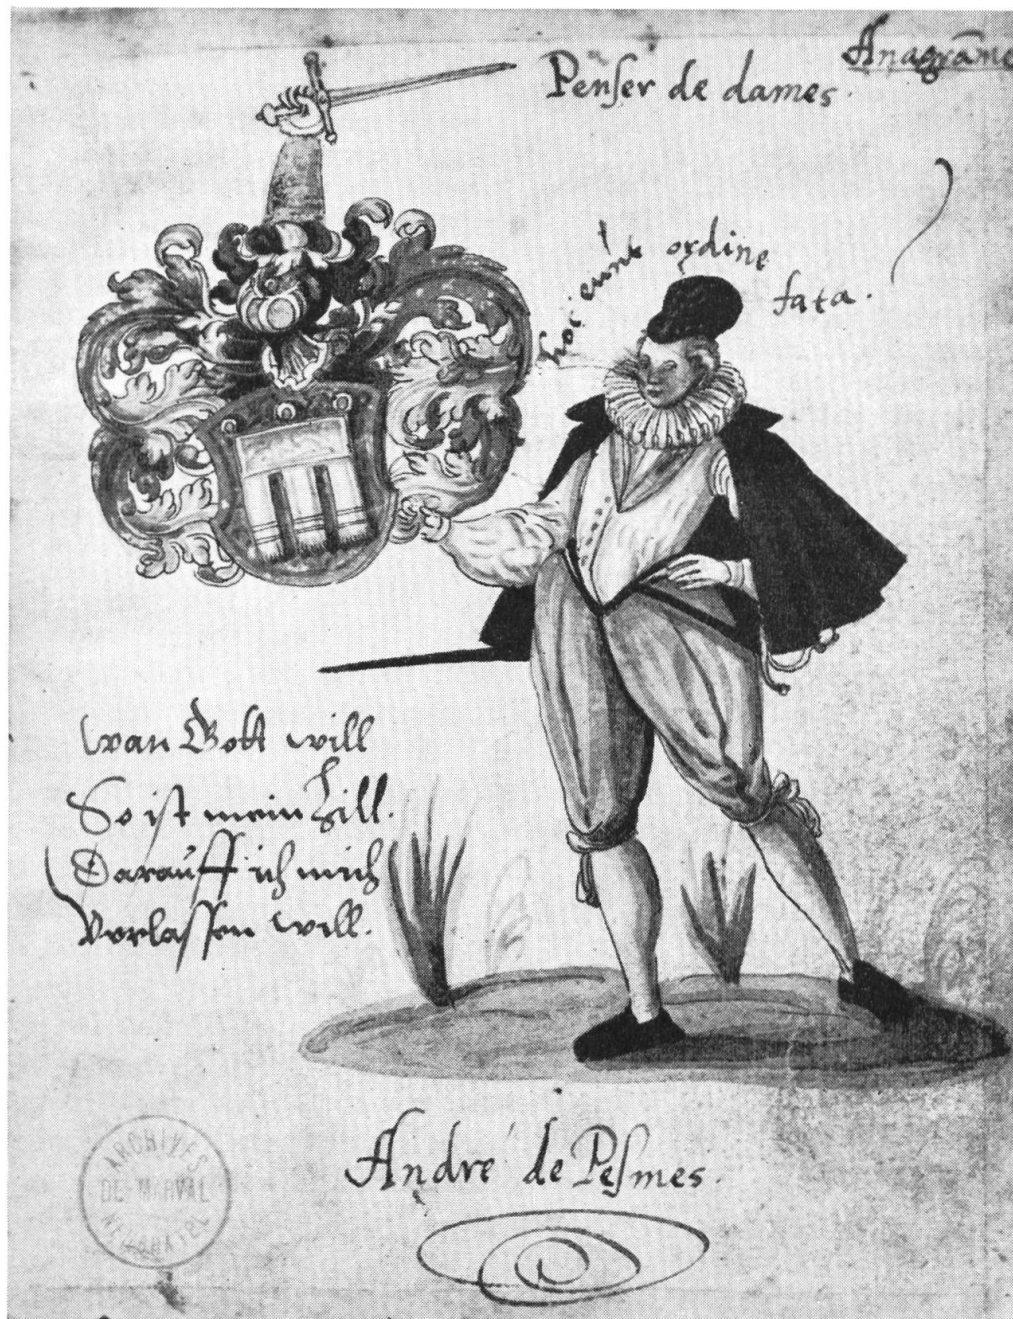 Anagrāme
Penser de dames.
hoc eunt ordine fata.
wan Gott will
So ist mein Zill.
Darauff ich mich
Verlassen will.
André de Pesmes.
ARCHIVES
DE MARVAL
NEUCHATEL